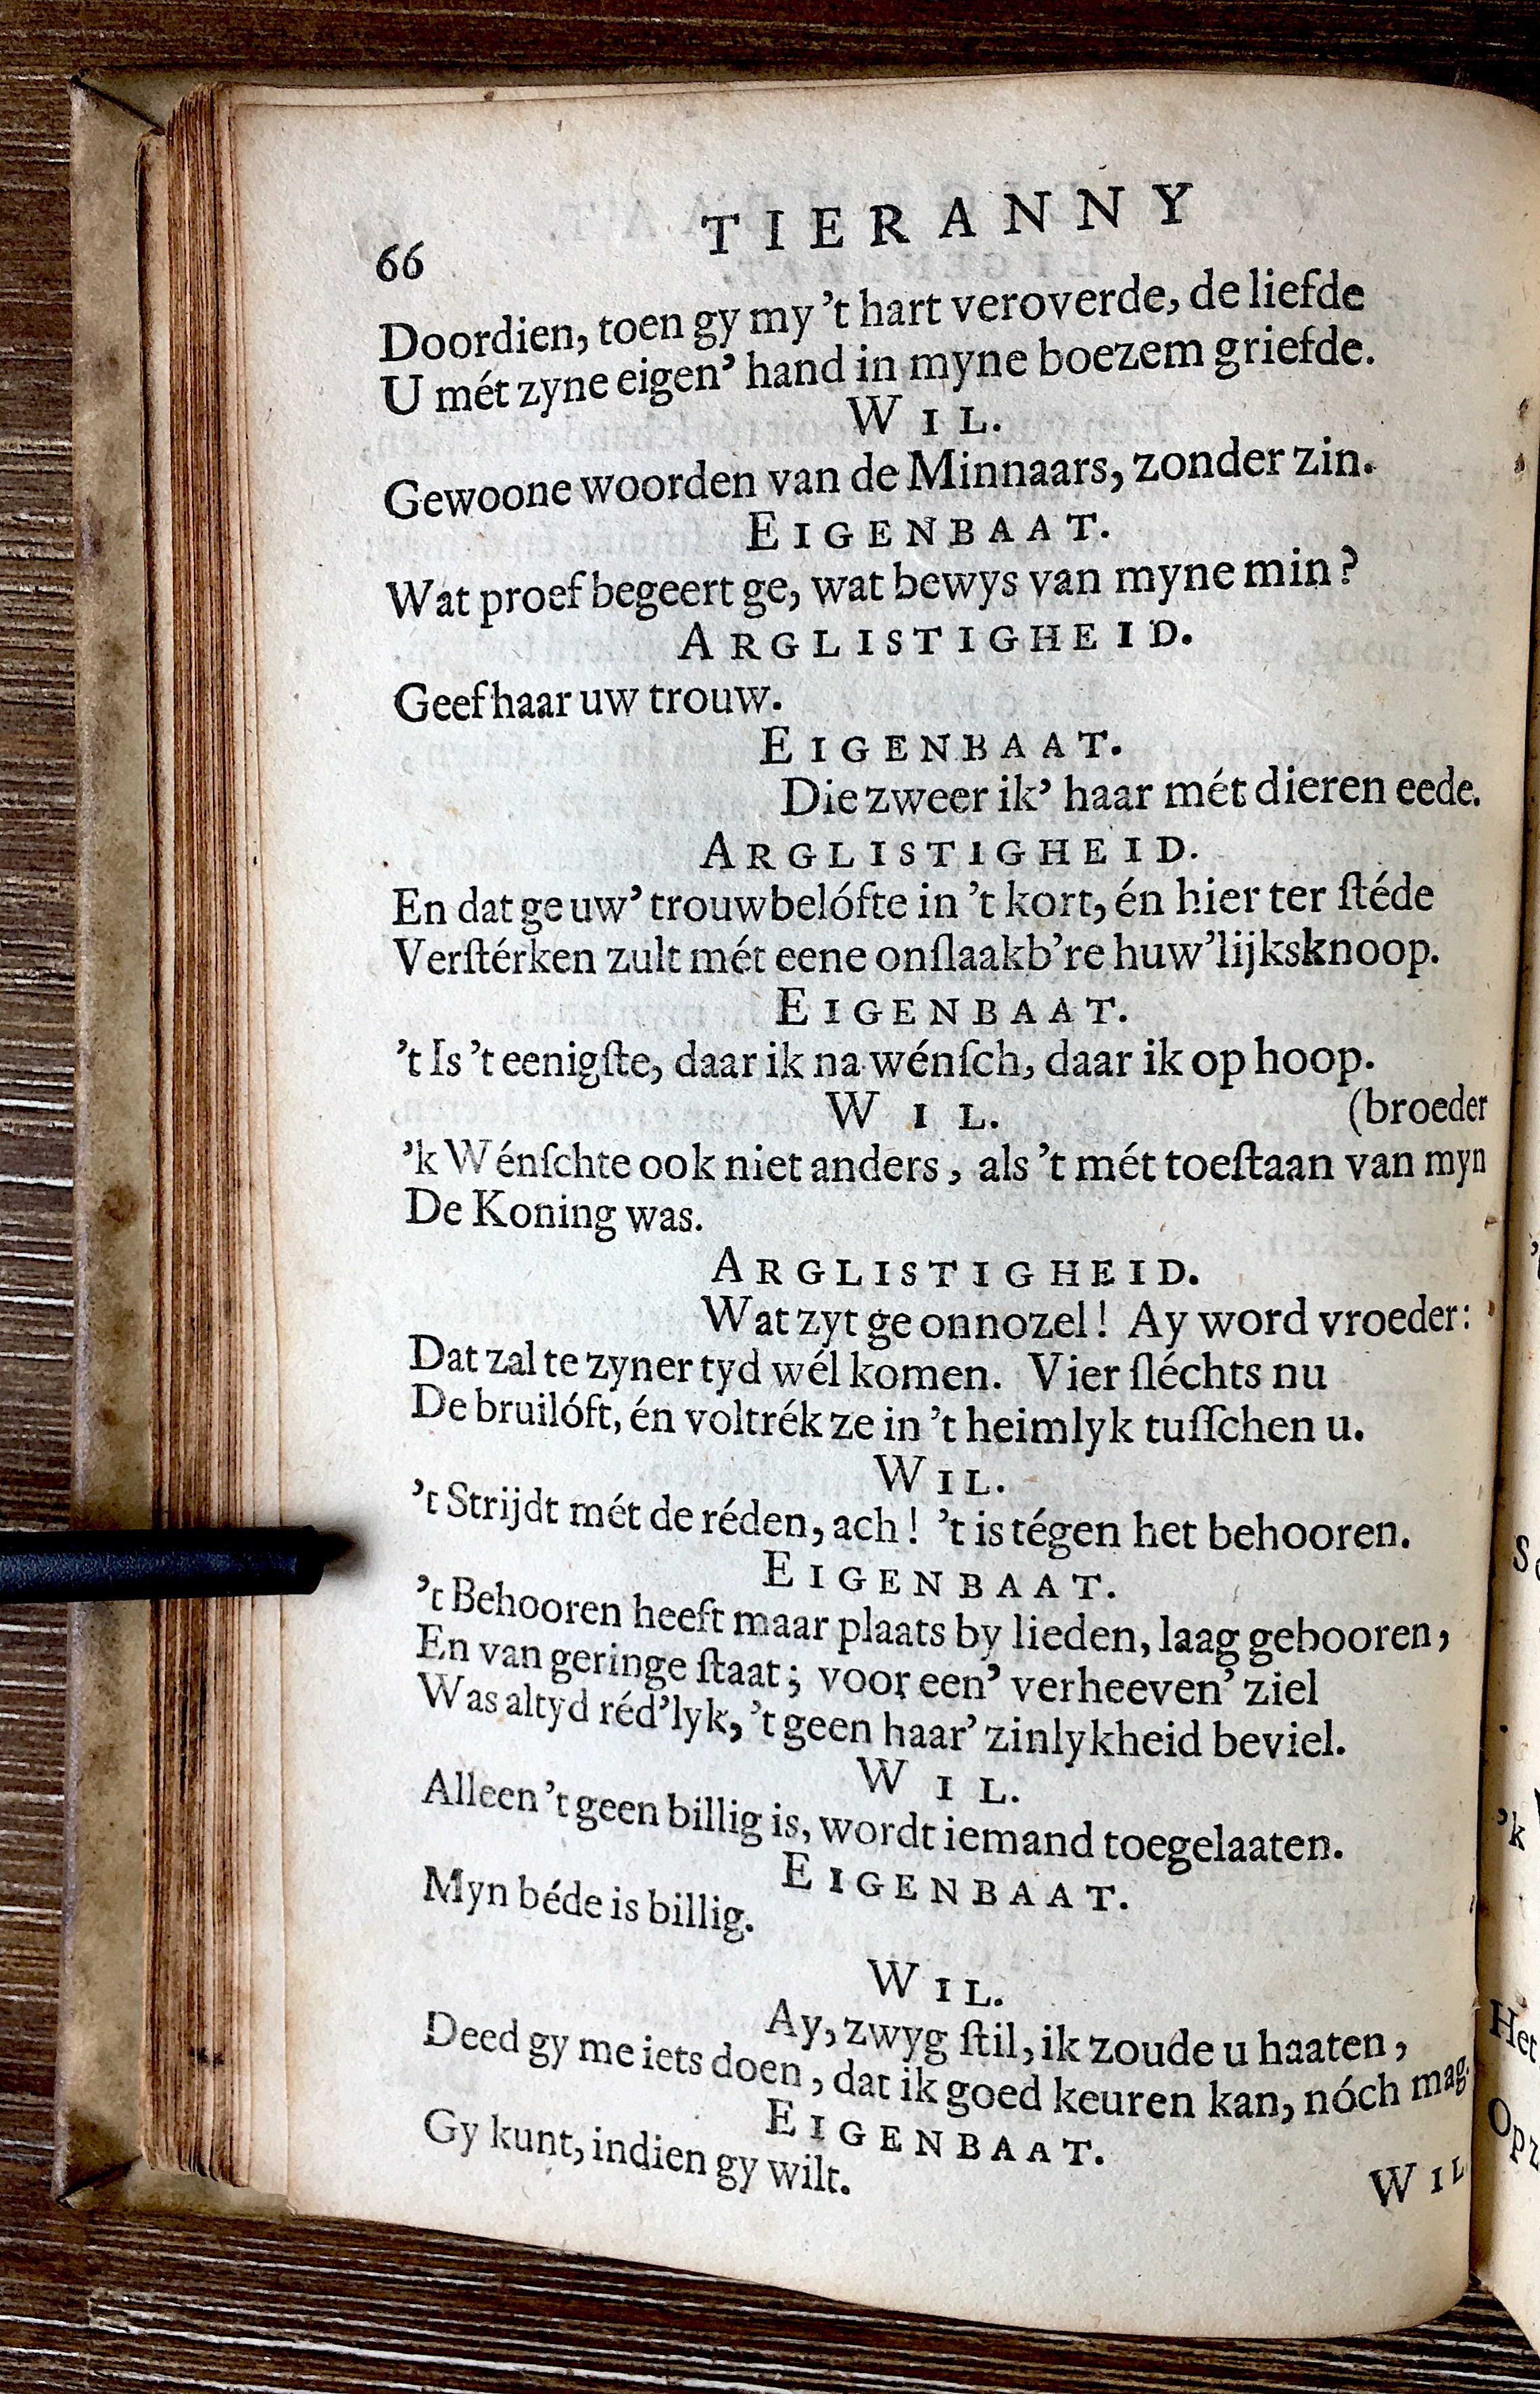 66
TIERANNY
Doordien, toen gy my 't hart veroverde, de liefde
U mét zyne eigen' hand in myne boezem griefde.
WIL.
Gewoone woorden van de Minnaars, zonder zin.
EIGENBAAT.
Wat proef begeert ge, wat bewys van myne min?
ARGLISTIGHEID.
Geef haar uw trouw.
EIGENBAAT.
Die zweer ik' haar mét dieren eede.
ARGLISTIGHEID.
En dat ge uw' trouwbelófte in 't kort, én hier ter ſtéde
Verſtérken zult mét eene onſlaakb're huw'lijksknoop.
EIGENBAAT.
't Is 't eenigſte, daar ik na wénſch, daar ik op hoop.
WIL.
(broeder
'k Wénſchte ook niet anders, als 't mét toeſtaan van myn
De Koning was.
ARGLISTIGHEID.
Wat zyt ge onnozel! Ay word vroeder:
Dat zal te zyner tyd wél komen. Vier ſléchts nu
De bruilóft, én voltrék ze in 't heimlyk tuſſchen u.
WIL.
't Strijdt mét de réden, ach! 't is tégen het behooren.
EIGENBAAT.
't Behooren heeft maar plaats by lieden, laag gebooren,
En van geringe ſtaat; voor een' verheeven' ziel
Was altyd réd'lyk, 't geen haar' zinlykheid beviel.
WIL.
Alleen 't geen billig is, wordt iemand toegelaaten.
EIGENBAAT.
Myn béde is billig.
WIL.
Ay, zwyg ſtil, ik zoude u haaten,
Deed gy me iets doen, dat ik goed keuren kan, nóch mag.
EIGENBAAT.
Gy kunt, indien gy wilt.
WIL